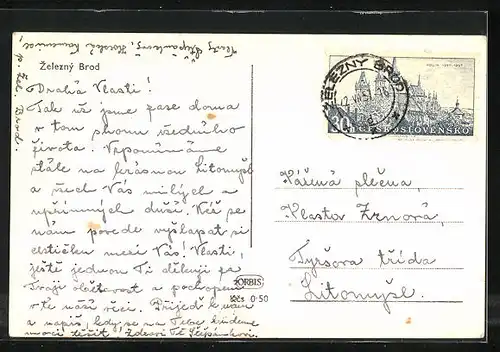 Železný Brod
Drahá Vlasti!
Tak už jsme zase doma
v tom shonu všedního
života. Vzpomínáme
stále na krásnou Litomyšl
a všech Vás milých a
upřímných duší. Kéž se
nám povede vyšlapat si
cestičku mezi Vás! Vlasti,
ještě jednou Ti děkuji za
Tvoji obětavost a pochopení
v té naší věci. Přijeď k nám
a napiš, kdy se na Tebe budeme
moci těšit. Zdraví Tě Štěpánkovi.
p. Žel. Brod.
ORBIS
Kčs 0·50
ŽELEZNÝ BROD
PRAHA 1957
30
ČESKOSLOVENSKO
Vážená slečna,
Vlasta Zrnová,
Tyršova třída
Litomyšl.